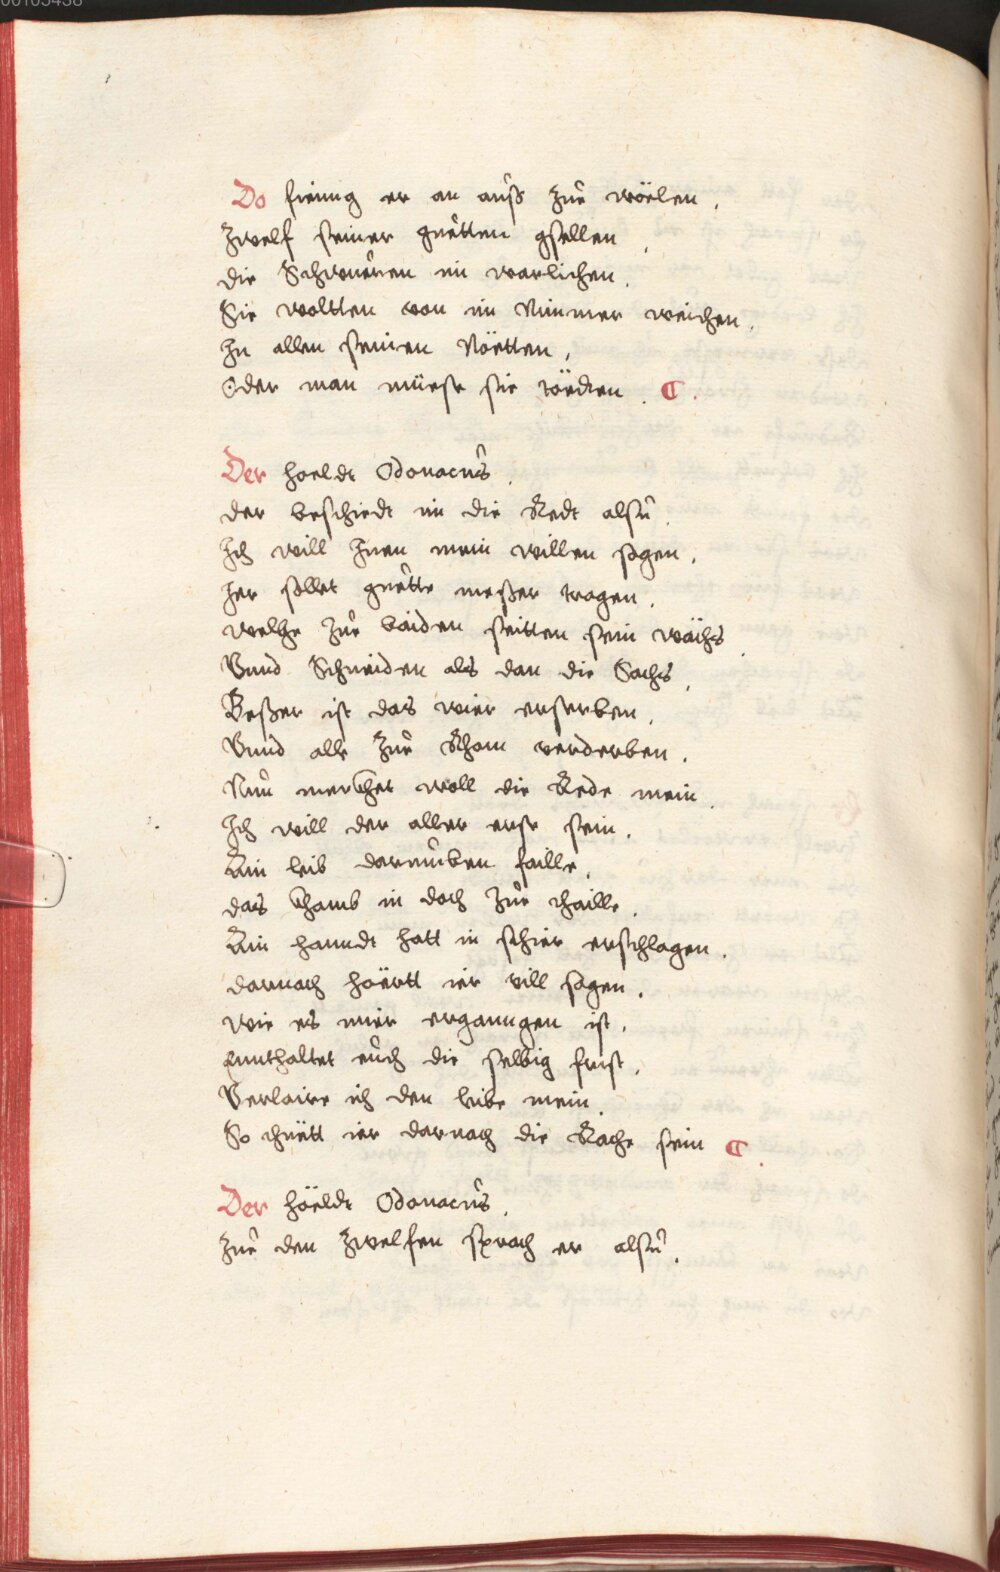 00105458
Do fienng er an auß zue wöelen.
Zwelf seiner guetten gsellen.
die Schwueren im warlichen.
Sie woltten von im Nimmer weichen.
In allen seinen Nöetten.
Oder man müese sie töedten. ¶.
Der hoeldt Odonacus.
der beschiedt im die Redt alsu.
Ich will Inen mein willen sagen.
Her sollet guette meßer tragen.
welche zue baiden seitten sein wächs.
Vnnd Schneiden als dan die Sachs.
Beßer ist das wier ersterben.
Vnnd alle zue Scham verderben.
Nun merckhet woll die Rede mein.
Ich will der aller erst sein.
Ain leib darumben faille.
das khamb in doch zue thaille.
Ain hanndt hatt in schier erschlagen.
darnach höertt ier vill sagen.
wie es mier erganngen ist.
Ennthaltet euch die selbig frist.
Verlaire ich den leibe mein.
So thuett ier darnach die Rache sein ¶.
Der höeldt Odonacus.
Zue den Zwelfen sprach er alsu.